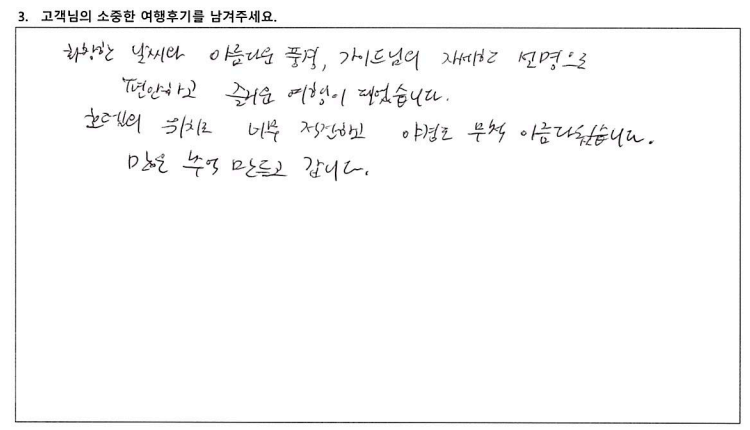 3. 고객님의 소중한 여행후기를 남겨주세요.
화창한 날씨와 아름다운 풍경, 가이드님의 자세한 설명으로
편안하고 즐거운 여행이 되었습니다.
호텔의 위치도 너무 적절하고 야경도 무척 아름다웠습니다.
많은 추억 만들고 갑니다.